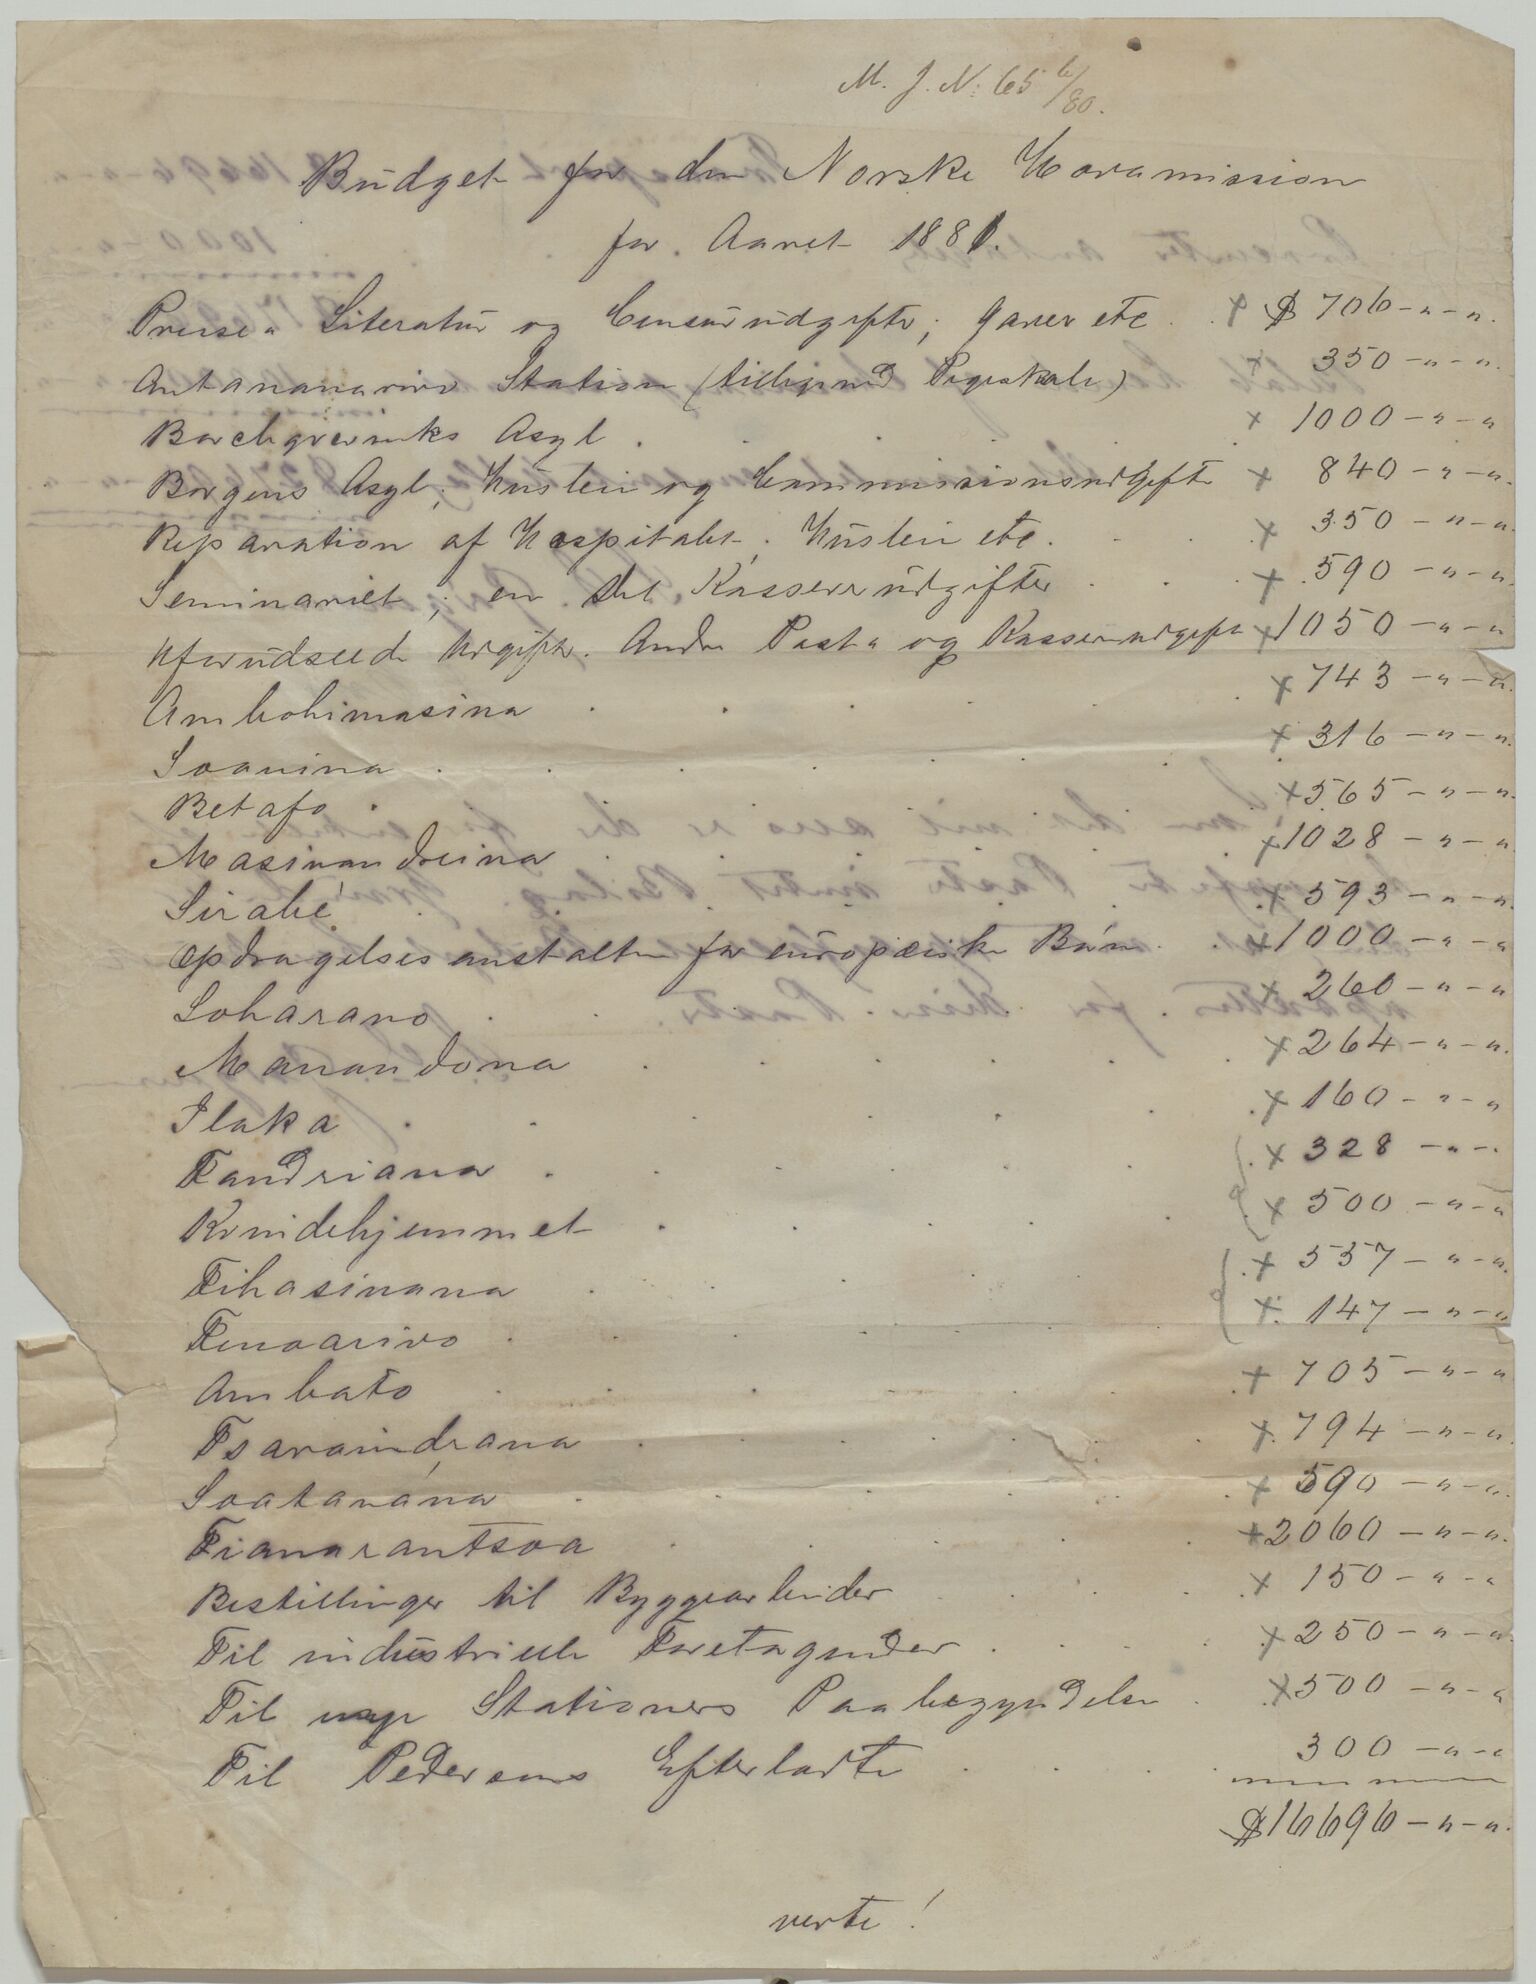 M. J. N: 65 6/80.
Budget for den Norske Hovamission
for Aaret 1881.
Presse " Literatur og Censurudgifter, Gaver etc . . x $ 706 - " - ".
Antananarivo Station (tillige med Pigeskole) x 350 - " - ".
Borchgrevinks Asyl . . . . x 1000 - " - "
Borgens Asyl, Husleie og Commissionsudgifter x 840 - " - ".
Reparation af Hospitalet, Husleie etc. . . . x 350 - " - ".
Seminariet, en Del Kasserer udgifter . . . x 590 - " - ".
Uforudseede Udgifter. Andre Post " og Kassererudgift x 1050 - " - "
Ambohimasina . . . . . x 743 - " - ".
Soavina . . . . . . x 316 - " - ".
Betafo . x 565 - " - ".
Masinandreina . x 1028 - " - "
Sirabé . x 593 - " - ".
Opdragelsesanstalten for europæiske Børn . x 1000 - " - "
Loharano . . . x 260 - " - "
Manandona . . . . . x 264 - " - ".
Ilaka . . . . . . x 160 - " - "
Fandriana . . . . . x 328 - " - .
Kvindehjemmet . . . . . x 500 - " - "
Fihasinana . . . . . x 557 - " - ".
Fenoarivo . . . . . x 147 - " - "
Ambato . . . . . x 705 - " - "
Tsaraindrana . . . . . x 794 - " - ".
Soatanána . . . . . x 590 - " - ".
Fianarantsoa . . . . . x 2060 - " - ".
Bestillinger til Byggearbeider . . . x 150 - " - "
Til industrielle Foretagender . . . . x 250 - " - "
Til nye Stationers Paabegyndelse . . x 500 - " - "
Til Pedersens Efterladte . . . 300 - " - "
$ 16696 - " - ".
verte!